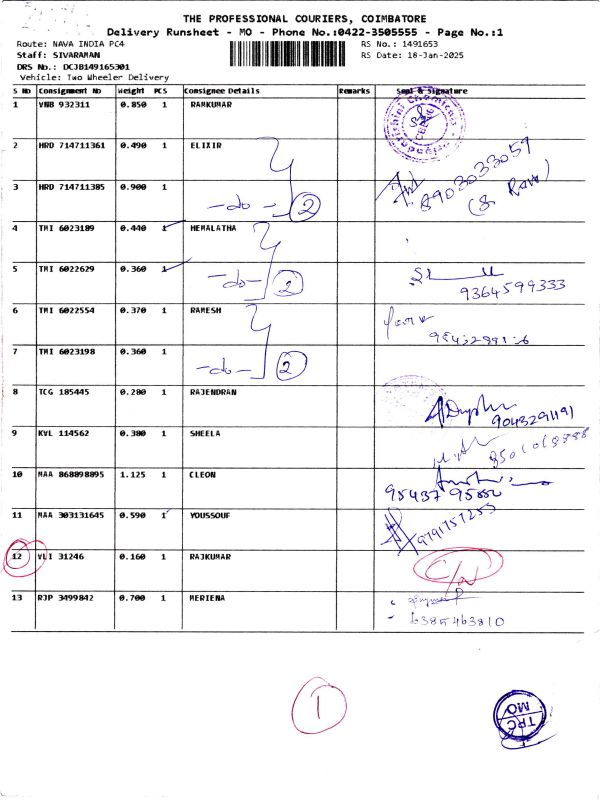 THE PROFESSIONAL COURIERS, COIMBATORE
Delivery Runsheet - MO - Phone No.:0422-3505555 - Page No.:1
Route: NAVA INDIA PC4 RS No.: 1491653
Staff: SIVARAMAN RS Date: 18-Jan-2025
DRS No.: DCJB149165301
Vehicle: Two Wheeler Delivery
S No Consignment No Weight PCS Consignee Details Remarks Seal & Signature
1 VNB 932311 0.850 1 RAMKUMAR
2 HRD 714711361 0.490 1 ELIXIR
8903033059
3 HRD 714711385 0.900 1 -do- 2
(S. Ravi)
4 TMI 6023189 0.440 1 HEMALATHA
5 TMI 6022629 0.360 1 -do- 2
9364599333
6 TMI 6022554 0.370 1 RAMESH
7 TMI 6023198 0.360 1 -do- 2
8 TCG 185445 0.280 1 RAJENDRAN
9043291191
9 KVL 114562 0.380 1 SHEELA
10 MAA 868898895 1.125 1 CLEON
11 MAA 303131645 0.590 1 YOUSSOUF
9791757255
12 VLI 31246 0.160 1 RAJKUMAR
13 RJP 3499842 0.700 1 MERIENA
6385463810
1
TPC
MO